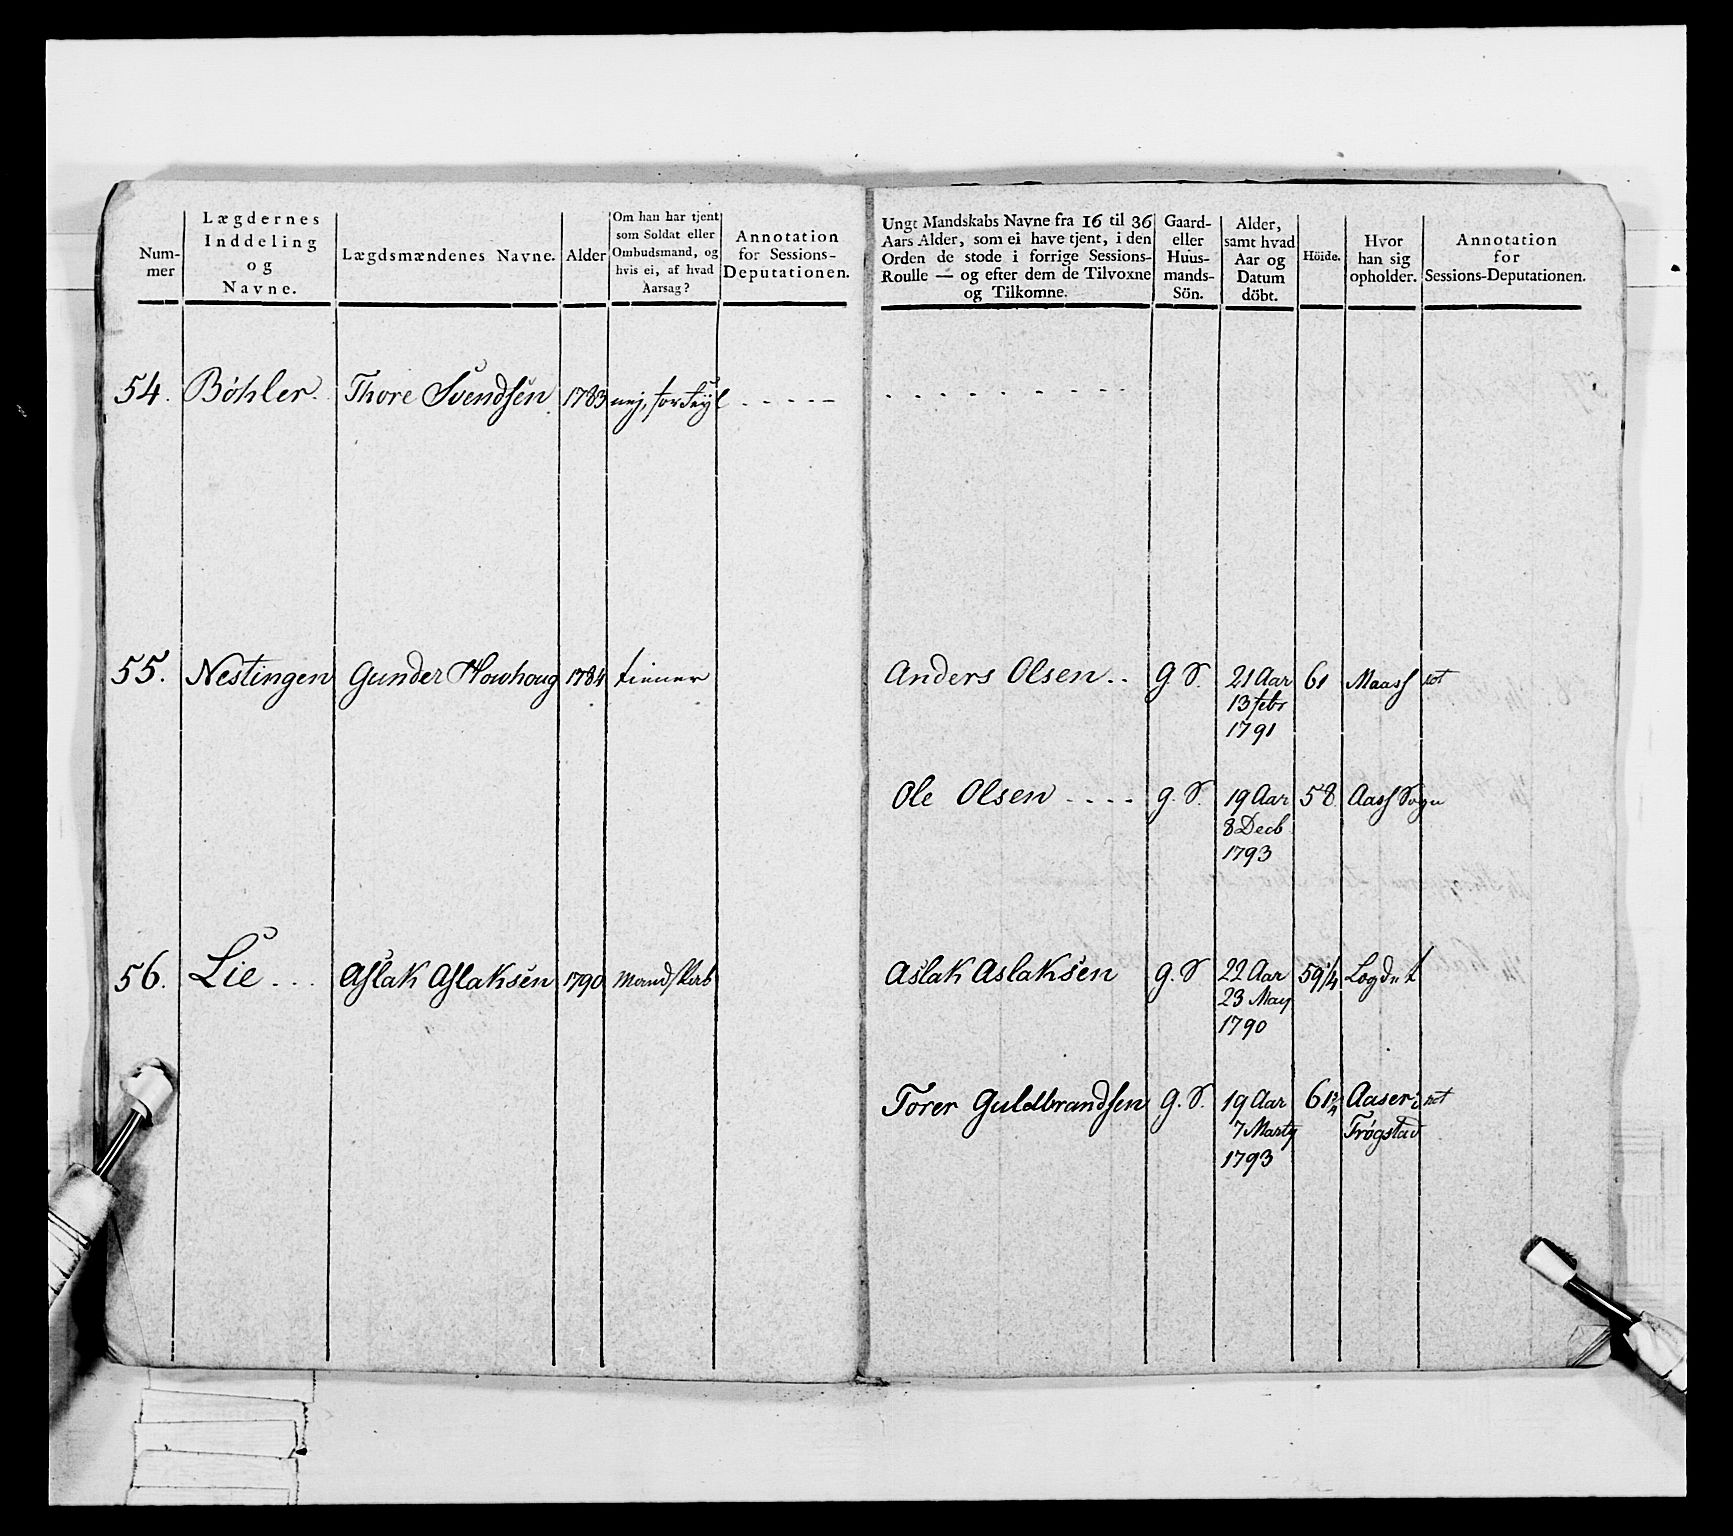 Num-
mer
Lægdernes
Inddeling
og
Navne.
Lægdsmændenes Navne.
Alder
Om han har tjent
som Soldat eller
Ombudsmand, og
hvis ei, af hvad
Aarsag?
Annotation
for Sessions-
Deputationen.
Ungt Mandskabs Navne fra 16 til 36
Aars Alder, som ei have tjent, i den
Orden de stode i forrige Sessions-
Roulle — og efter dem de Tilvoxne
og Tilkomne.
Gaard-
eller
Huus-
mands-
Sön.
Alder,
samt hvad
Aar og
Datum
döbt.
Höide.
Hvor
han sig
opholder.
Annotation
for
Sessions-Deputationen.
54. Böhler. Thore Svendsen 1783 nej, for Fejl
55. Nestingen Gunder Howhoug 1784 tiener
Anders Olsen.. g S. 21 Aar 61
13 febr
1791
Ole Olsen .... g. S. 19 Aar 58 Aass Sogn
8 Decb
1793
56. Lie ... Aslak Aslaksen 1790 Mandskab
Aslak Aslaksen g. S 22 Aar 59 1/4
23 May
1790
Torer Guldbrandsen g. S. 19 Aar Aaser i
7 Marty Frøgstad
1793